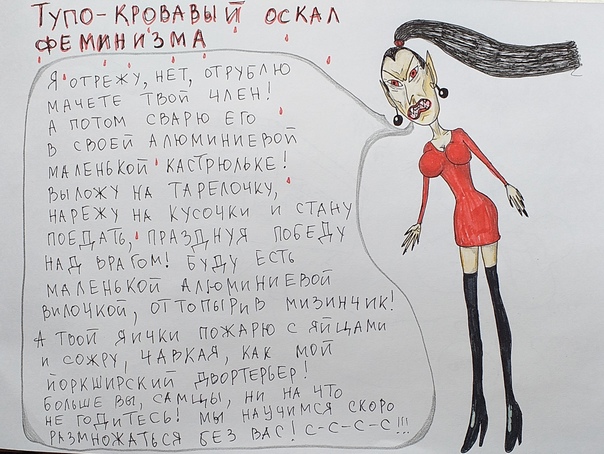 ТУПО-КРОВАВЫЙ ОСКАЛ
ФЕМИНИЗМА
Я ОТРЕЖУ, НЕТ, ОТРУБЛЮ
МАЧЕТЕ ТВОЙ ЧЛЕН!
А ПОТОМ СВАРЮ ЕГО
В СВОЕЙ АЛЮМИНИЕВОЙ
МАЛЕНЬКОЙ КАСТРЮЛЬКЕ!
ВЫЛОЖУ НА ТАРЕЛОЧКУ,
НАРЕЖУ НА КУСОЧКИ И СТАНУ
ПОЕДАТЬ, ПРАЗДНУЯ ПОБЕДУ
НАД ВРАГОМ! БУДУ ЕСТЬ
МАЛЕНЬКОЙ АЛЮМИНИЕВОЙ
ВИЛОЧКОЙ, ОТТОПЫРИВ МИЗИНЧИК!
А ТВОЙ ЯИЧКИ ПОЖАРЮ С ЯЙЦАМИ
И СОЖРУ, ЧАВКАЯ, КАК МОЙ
ЙОРКШИРСКИЙ ДВОРТЕРЬЕР!
БОЛЬШЕ ВЫ, САМЦЫ, НИ НА ЧТО
НЕ ГОДИТЕСЬ! МЫ НАУЧИМСЯ СКОРО
РАЗМНОЖАТЬСЯ БЕЗ ВАС! С-С-С-С!!!